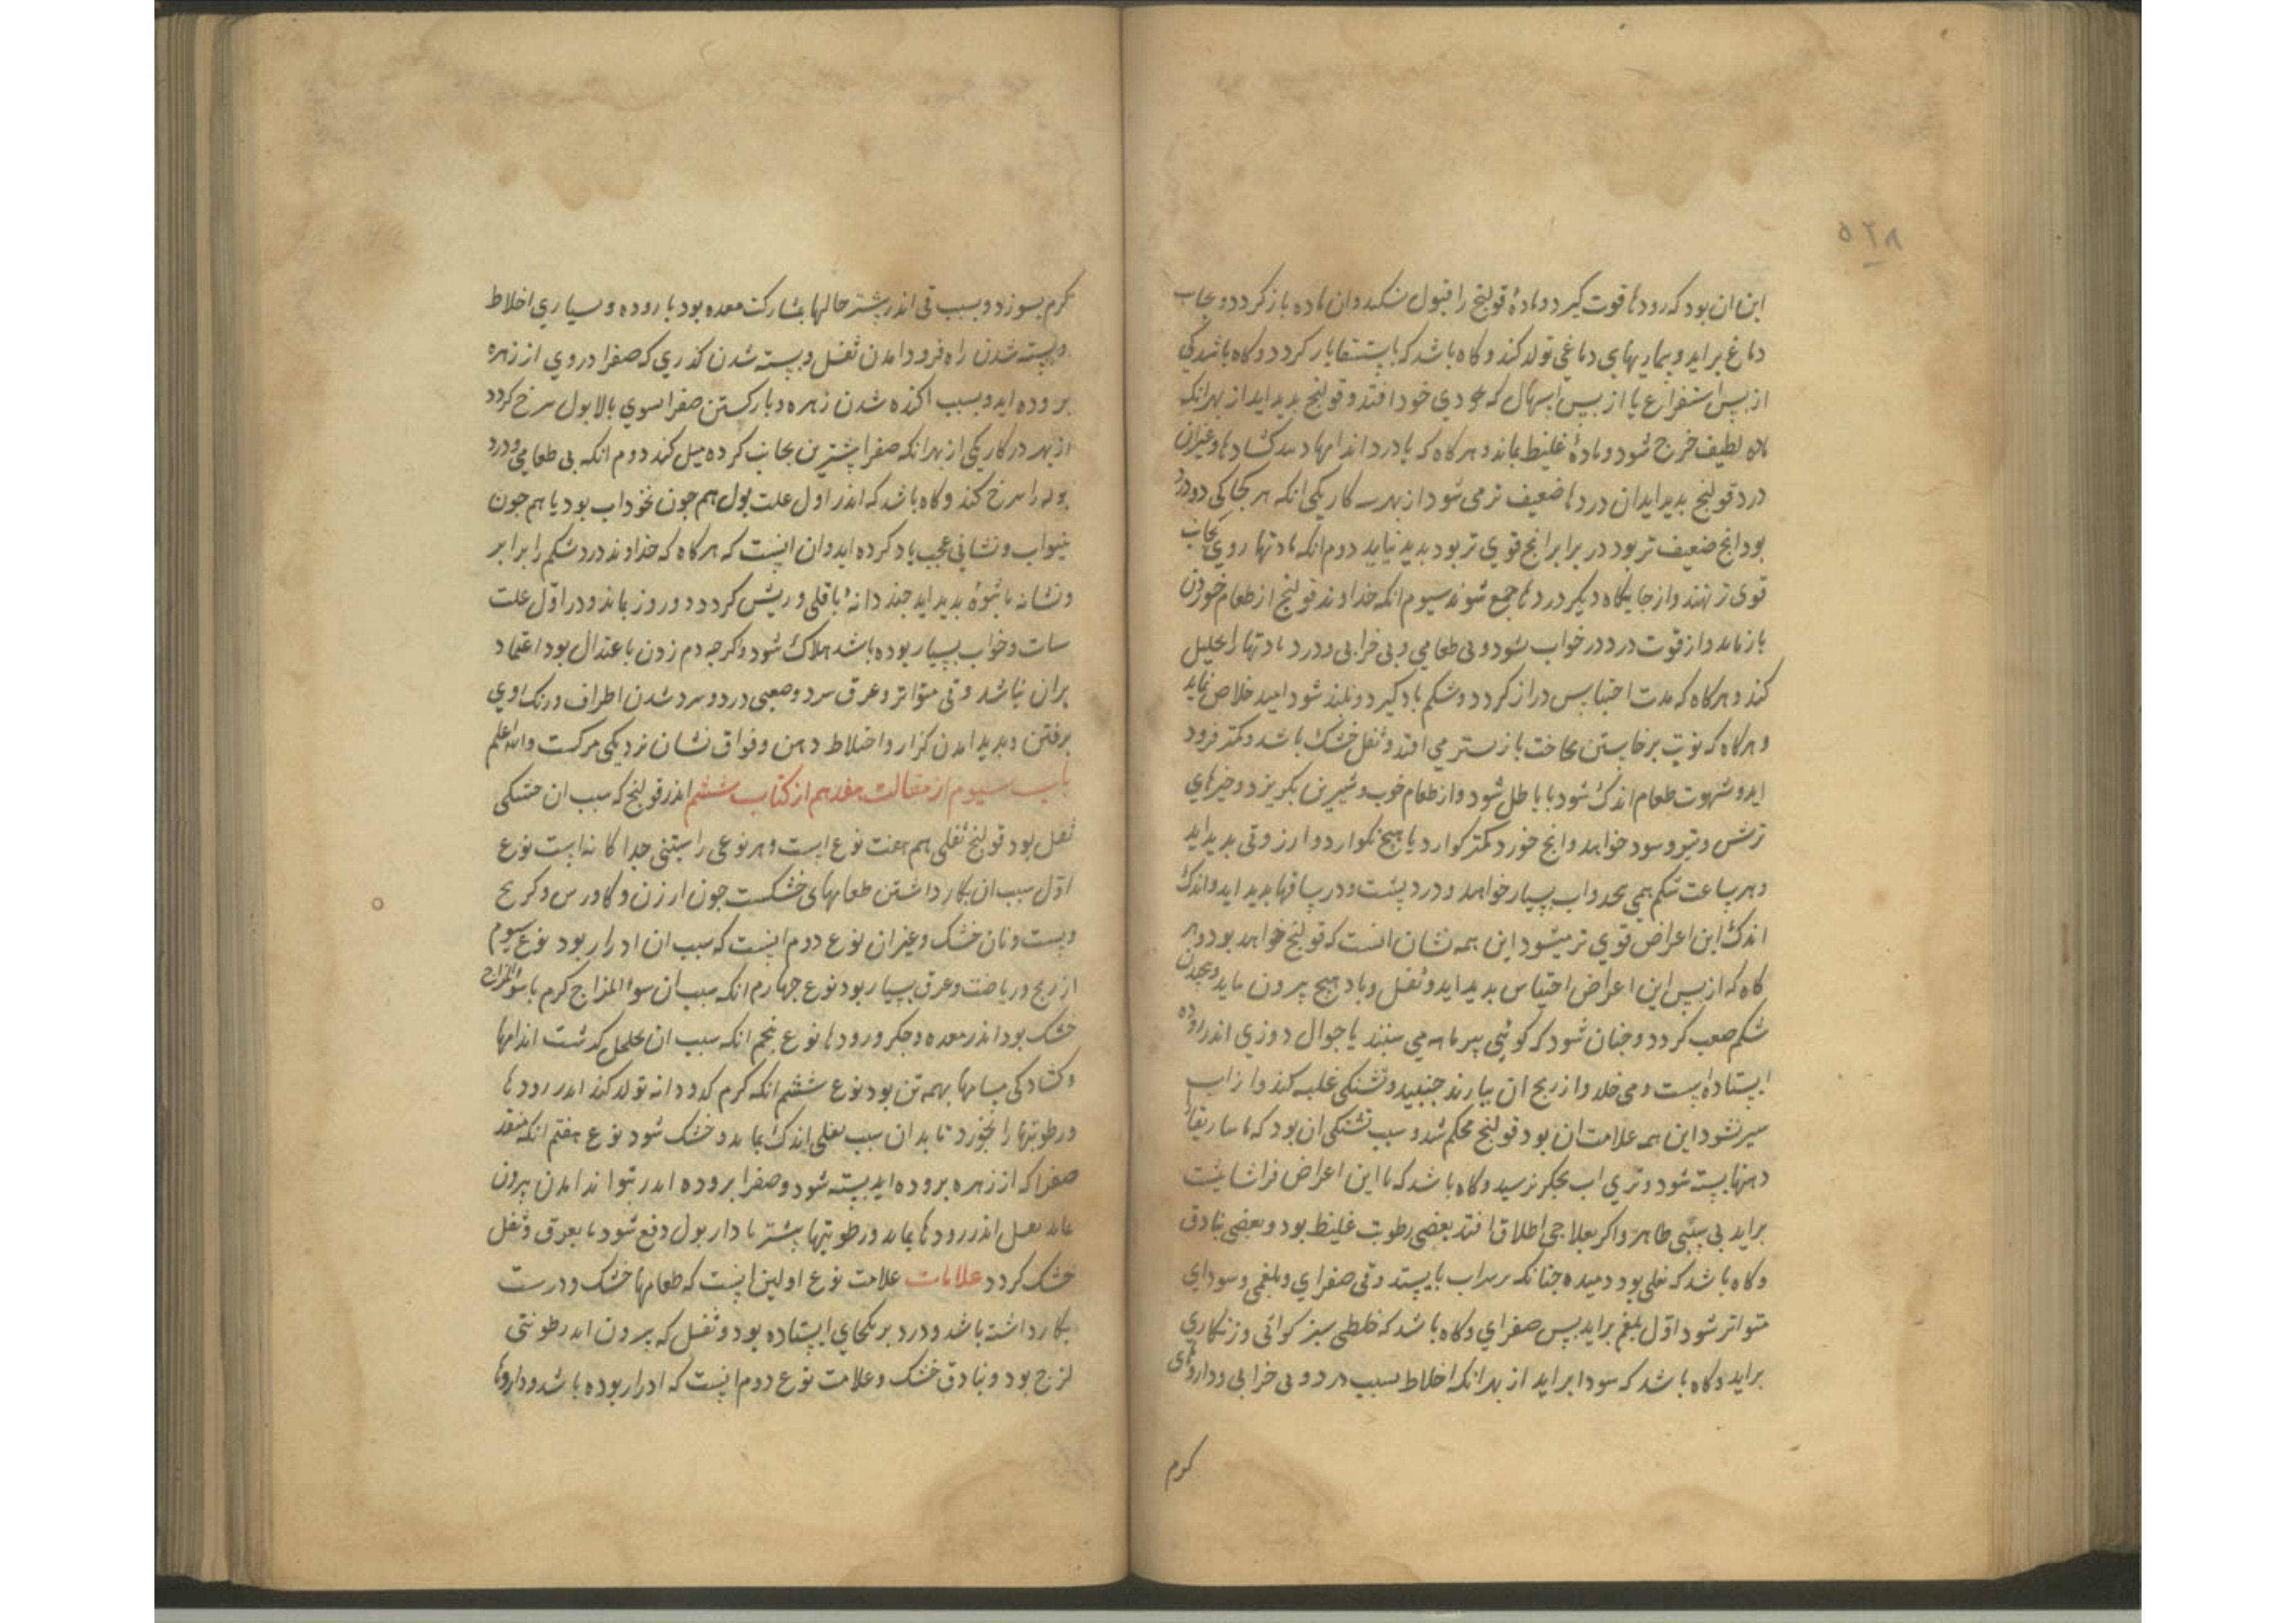 ۵۲۸
این ان بود که رودها قوت کیرد و مادهٔ قولنج را قبول نکند و ان ماده باز کردد و بجانب
دماغ براید و بیماریهای دماغی تولد کند و کاه باشد که باستسقا باز کردد و کاه باشد کی
از پس استفراغ یا از پس اسهال که خودی خود افتد و قولنج بدید اید از بهر انک
ماده لطیف خرج شود و مادهٔ غلیظ بماند و هر کاه که با درد اندامها و غیر ان
درد قولنج بدید اید ان دردها ضعیف تر می شود از بهر دو کار یکی انکه هر کجا کی دو درد
بود انج ضعیف تر بود در برابر انج قوی تر بود بدید نیاید دوم انکه مادتها روی بجانب
قوی تر نهند و از جایکاه دیکر دردها جمع شوند سیوم انکه خداوند قولنج از طعام خوردن
باز ماند و از قوت درد در خواب نشود و بی طعامی و بی خوابی و درد مادتها را تحلیل
کند و هرکاه که مدت احتباس دراز کردد و شکم باد کیرد و بلند شود امید خلاص نماید
و هرکاه که نوبت برخاستن بحاجت باز ستر می افتد و ثفل خشک باشد و کمتر فرود
اید و شهوت طعام اندک شود یا باطل شود و از طعام خوب و شیرین بکریزد و چیزهای
ترش و تیز و سود خواهد و انج خورد کمتر کوارد یا هیچ نکوارد و ارزو قی بدید اید
و هر ساعت شکم همی و اب بسیار خواهد و درد پشت و در ساقها بدید اید و اندک
اندک این اعراض قوی تر میشود این همه نشان انست که قولنج خواهد بود و هر
کاه که از پس این اعراض احتباس بدید اید و ثفل و باد هیچ بیرون نیاید و پیچیدن
شکم صعب کردد و چنان شود که کوئی بیرماهه می سنبند یا جوال دوزی اندر روده
ایستاده است و می خلد و از رنج ان بیارند جنبید و تشنکی غلبه کند و از اب
سیر نشود این همه علامت ان بود قولنج محکم شد و سبب تشنکی ان بود که ماساریقا را
دهنها بسته شود و تری اب بجکر نرسد و کاه باشد که با این اعراض فراشا پشت
براید بی سببی ظاهر و اکر بعلاجی اطلاق افتد بعضی رطوبت غلیظ بود و بعضی بنادق
و کاه باشد که ثفلی بود دمیده چنانکه بر سر اب بایستد و قی صفرای و بلغمی و سودای
متواتر شود اوّل بلغم براید پس صفرای و کاه باشد که خلطی سبز کراثی و زنکاری
براید و کاه باشد که سودا براید از بهر انکه اخلاط بسبب درد و بی خوابی و داروهای
کرم
کرم بسوزد و سبب قی اندر بیشتر حالها بمشارکت معده بود با روده و بسیاری اخلاط
و بسته شدن راه فرود امدن ثفل و بسته شدن کذری که صفرا در وی از زهره
بروده اید و بسبب اکنده شدن زهره و بازکشتن صفرا بسوی بالا بول سرخ کردد
از بهر دو کار یکی از بهر انکه صفرا بیشترین بجانب کرده میل کند دوم انکه بی طعامی و درد
بول را سرخ کند و کاه باشد که اندر اول علت بول هم جون نخوداب بود یا هم جون
پنیراب و نشانی عجب یاد کرده اید و ان اینست که هرکاه که خداوند درد شکم را برابر
و نشانه با بثوه بدید اید جند دانهٔ باقلی و ریش کردد و دو روز بماند و در اوّل علت
سبات و خواب بسیار بوده باشد هلاک شود و اکرچه دم زدن باعتدال بود اعتماد
بران نباشد و قی متواتر و عرق سرد و صعبی درد و سرد شدن اطراف و رنک اوی
برفتن و بدید امدن کزاز و اختلاط ذهن و فواق نشان نزدیکی مرکست والله اعلم
باب سیوم از مقالت هفدهم از کتاب ششم اندر قولنج که سبب ان خشکی
ثفل بود قولنج ثفلی هم هفت نوع است و هر نوعی را سببی جدا کانه است نوع
اوّل سبب ان بکار داشتن طعامهای خشکست جون ارزن و کاورس و کرنج
و پست و نان خشک و غیر ان نوع دوم اینست که سبب ان ادرار بود نوع سیوم
از رنج و ریاضت و عرق بسیار بود نوع جهارم انکه سبب ان سوء المزاج کرم یا سوء المزاج
خشک بود اندر معده و جکر و رودها نوع پنجم انکه سبب ان تخلخل کوشت اندامها
و کشادکی مسامها بهمه تن بود نوع ششم انکه کرم کدو دانه تولد کند اندر رودها
و رطوبتها را بخورد تا بدان سبب ثفلی اندک بماند و خشک شود نوع هفتم انکه منفذ
صفرا که از زهره بروده اید بسته شود و صفرا بروده اندر نتواند امدن بیرون
ماند ثفل اندر رودها بماند و رطوبتها بیشتر با دار بول دفع شود یا بعرق و ثفل
خشک کردد علامات علامت نوع اولین اینست که طعامها خشک و درست
بکار داشته باشد و درد بر یکجای ایستاده بود و ثفل که بیرون اید رطوبتی
لزج بود و بنادق خشک و علامت نوع دوم اینست که ادرار بوده باشد و داروها